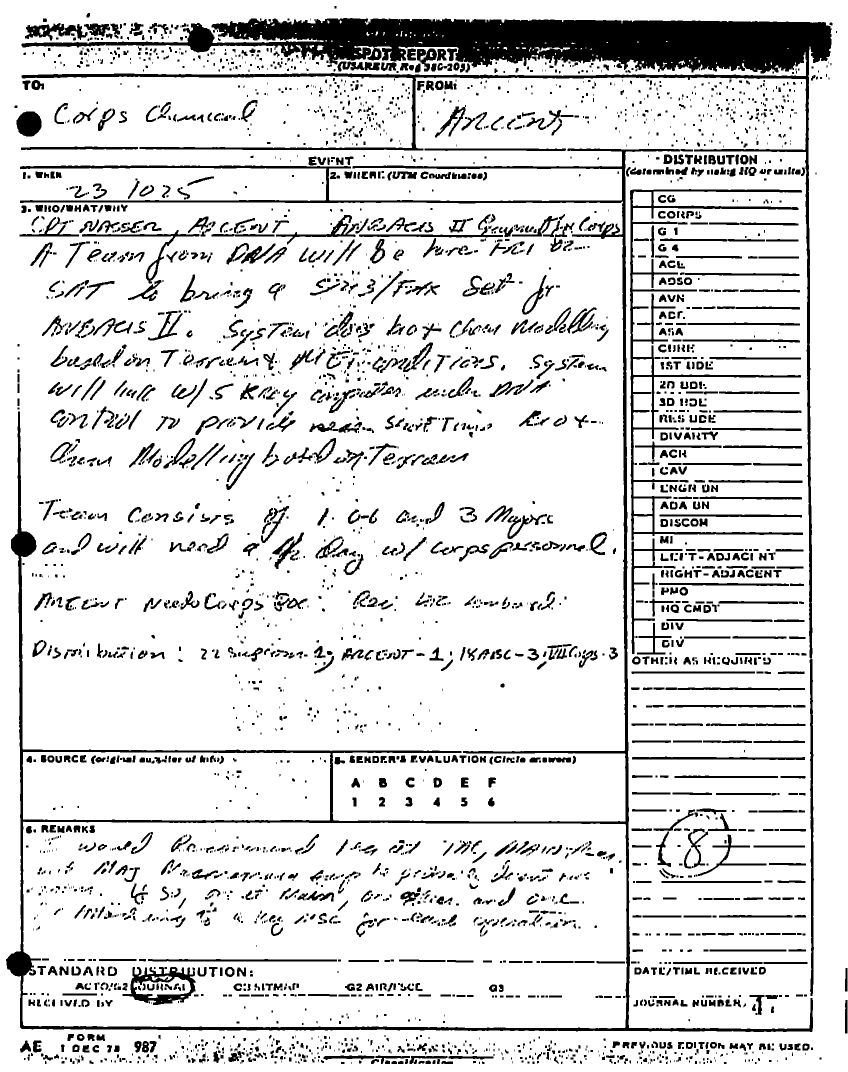 SPOT REPORT
(USAREUR Reg 380-205)
TO:
Corps Chemical
FROM:
ARCENT
EVENT
1. WHEN
23 1025
2. WHERE (UTM Coordinates)
3. WHO/WHAT/WHY
CPT NAESER, ARCENT, ANBACIS II Corps
A Team from DNA will be here FRI or
SAT to bring a /FAX Set for
ANBACIS II. System does bio + Chem Modelling
based on Terrain & MET conditions. System
will link w/ 5 Kray computer under DNA
control to provide near Bio +
Chem Modelling based on Terrain
Team consists of 1 O-6 and 3 Majors
and will need a 1/2 Day w/ corps personnel.
ARCENT Needs Corps
Distribution: 22 Supcom-1; ARCENT-1; 18ABC-3; VII Corps-3
4. SOURCE (original supplier of info)
5. SENDER'S EVALUATION (Circle answers)
A B C D E F
1 2 3 4 5 6
6. REMARKS
I would Recommend 1 ea at TAC, MAIN,
MAJ probably
If so, one at Main, one and one
to a key MSC for operation.
STANDARD DISTRIBUTION:
ACTO/G2 JOURNAL G3 SITMAP G2 AIR/FSCE G3
RECEIVED BY
DISTRIBUTION
(determined by using HQ or units)
CG
CORPS
G 1
G 4
ACE
ADSO
AVN
ASA
1ST BDE
2D BDE
3D BDE
RES BDE
DIVARTY
ACR
CAV
ENGR BN
ADA BN
DISCOM
MI
LEFT-ADJACENT
RIGHT-ADJACENT
PMO
HQ CMDT
DIV
DIV
OTHER AS REQUIRED
8
DATE/TIME RECEIVED
JOURNAL NUMBER.
AE FORM 1 DEC 78 987
PREVIOUS EDITION MAY BE USED.
Classification